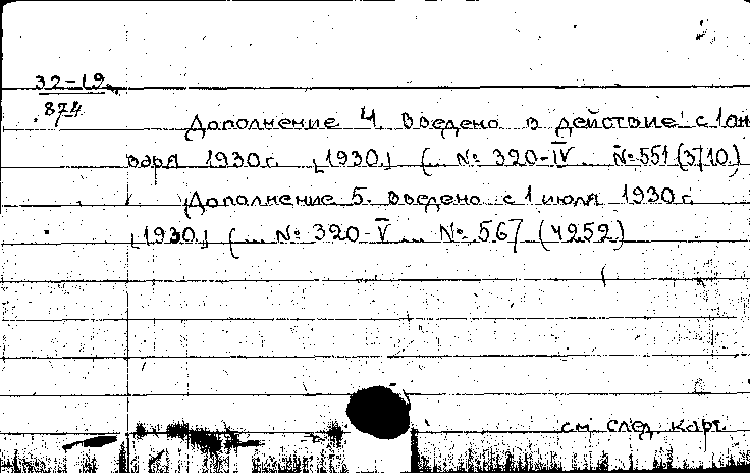 32-19
874
Дополнение 4. введено в действие с 1 ян
варя 1930 г. [1930.] (... № 320-IV ... № 551 (3710.)
Дополнение 5. введено с 1 июля 1930 г.
[1930.] (... № 320-V ... № 567 (4252.)
см. след. карт.